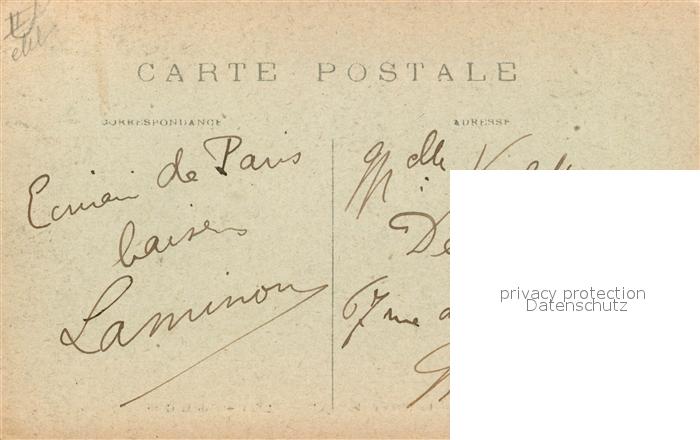 CARTE POSTALE
CORRESPONDANCE
ADRESSE
de Paris
baisers
Laminon
Mlle
De
67 rue
privacy protection
Datenschutz